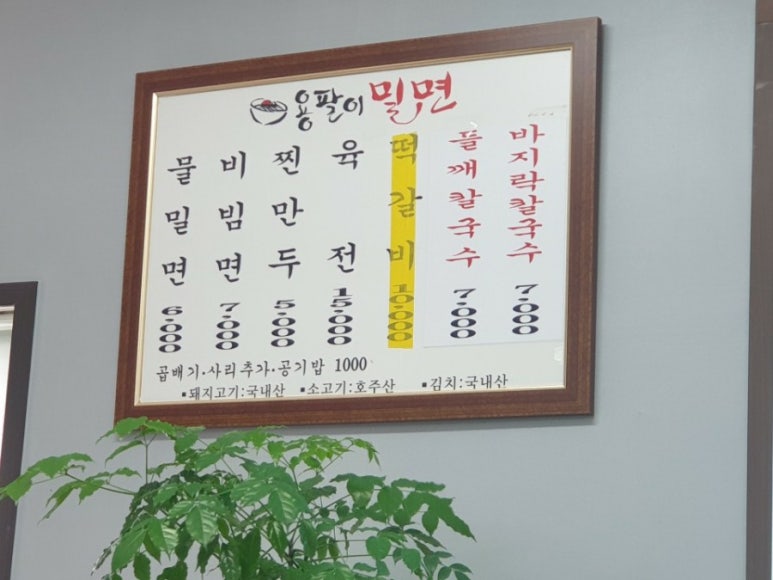 용팔이 밀면
물밀면 6.000
비빔면 7.000
찐만두 5.000
육전 15.000
떡갈비 10.000
들깨칼국수 7.000
바지락칼국수 7.000
곱배기·사리추가·공기밥 1000
▪돼지고기:국내산 ▪소고기:호주산 ▪김치:국내산